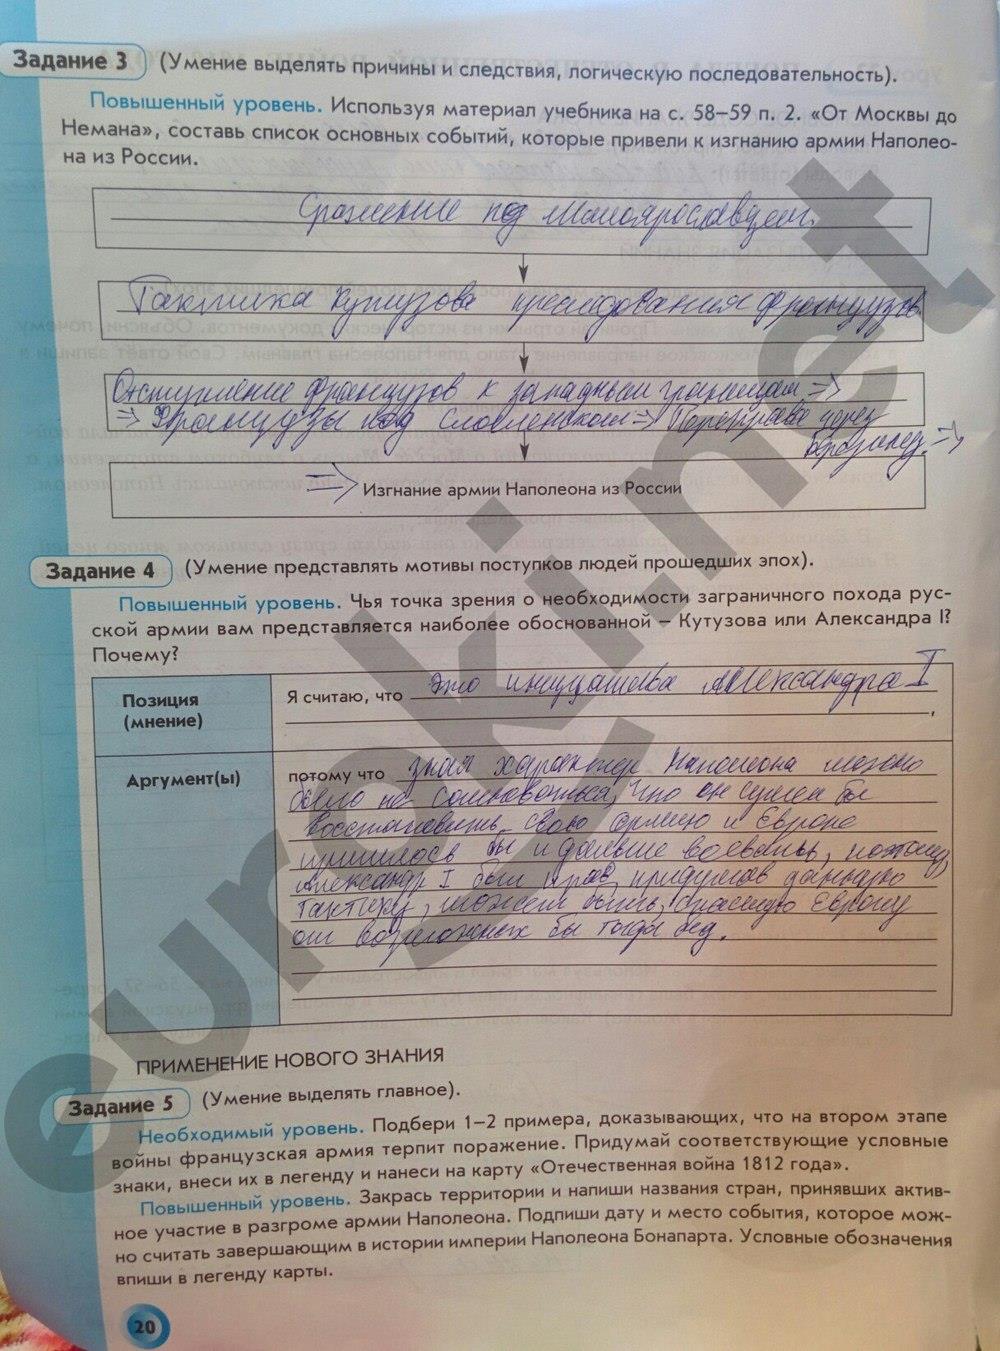 Задание 3 (Умение выделять причины и следствия, логическую последовательность).
Повышенный уровень. Используя материал учебника на с. 58–59 п. 2. «От Москвы до
Немана», составь список основных событий, которые привели к изгнанию армии Наполео-
на из России.
Сражение под Малоярославцем.
Тактика Кутузова преследования французов
Отступление французов к западным границам =>
=> Французы под Смоленском => Переправа через
Березину. =>
=> Изгнание армии Наполеона из России
Задание 4 (Умение представлять мотивы поступков людей прошедших эпох).
Повышенный уровень. Чья точка зрения о необходимости заграничного похода рус-
ской армии вам представляется наиболее обоснованной – Кутузова или Александра I?
Почему?
Позиция
(мнение)
Я считаю, что это инициатива Александра I
.
Аргумент(ы)
потому что зная характер Наполеона можно
было не сомневаться, что он сумел бы
восстановить свою армию и Европе
пришлось бы и дальше воевать, поэтому
Александр I был прав, придумав данную
тактику, может быть, спасшую Европу
от возможных бы тогда бед.
ПРИМЕНЕНИЕ НОВОГО ЗНАНИЯ
Задание 5 (Умение выделять главное).
Необходимый уровень. Подбери 1–2 примера, доказывающих, что на втором этапе
войны французская армия терпит поражение. Придумай соответствующие условные
знаки, внеси их в легенду и нанеси на карту «Отечественная война 1812 года».
Повышенный уровень. Закрась территории и напиши названия стран, принявших актив-
ное участие в разгроме армии Наполеона. Подпиши дату и место события, которое мож-
но считать завершающим в истории империи Наполеона Бонапарта. Условные обозначения
впиши в легенду карты.
20
euroki.net